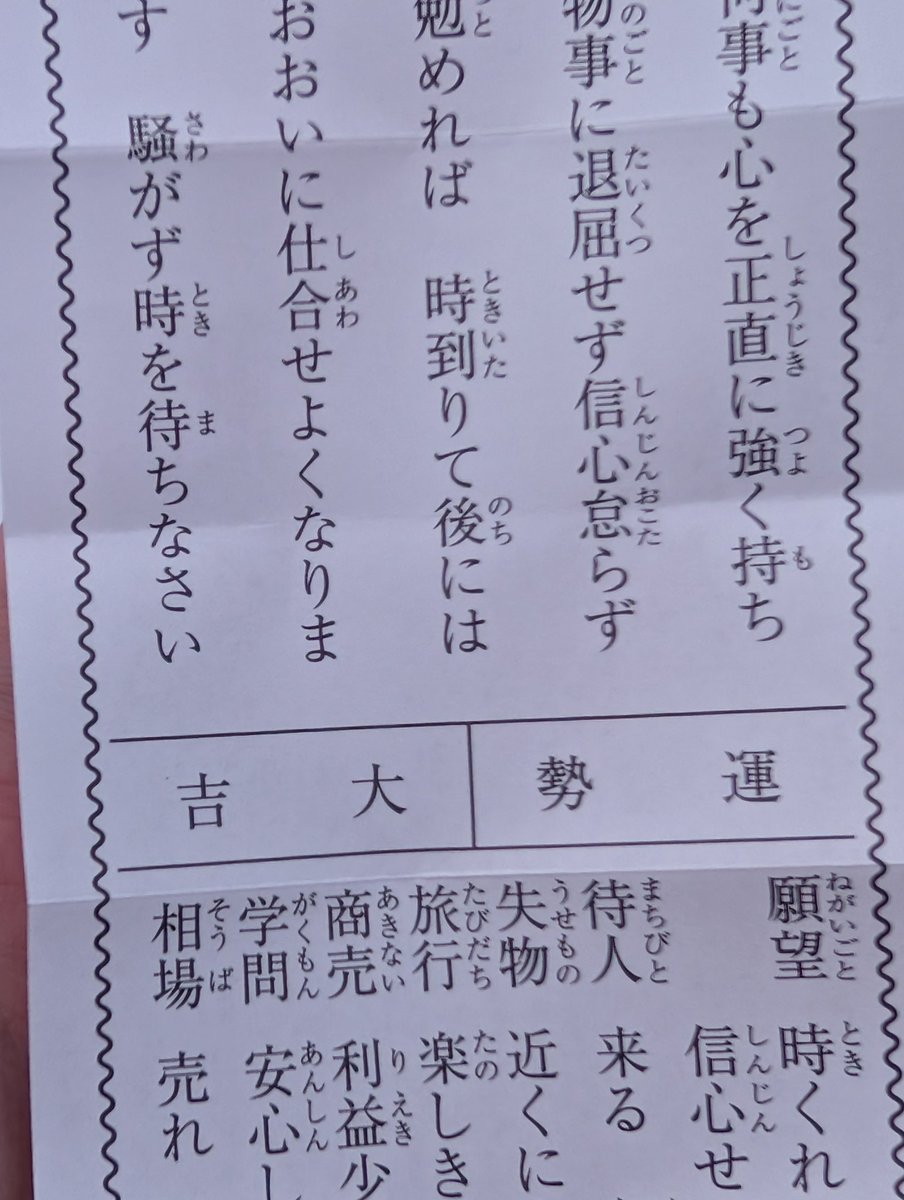 何事も心を正直に強く持ち
物事に退屈せず信心怠らず
勉めれば 時到りて後には
おおいに仕合せよくなりま
す 騒がず時を待ちなさい
運勢 大吉
願望 時くれ
信心せ
待人 来る
失物 近くに
旅行 楽しき
商売 利益少
学問 安心し
相場 売れ